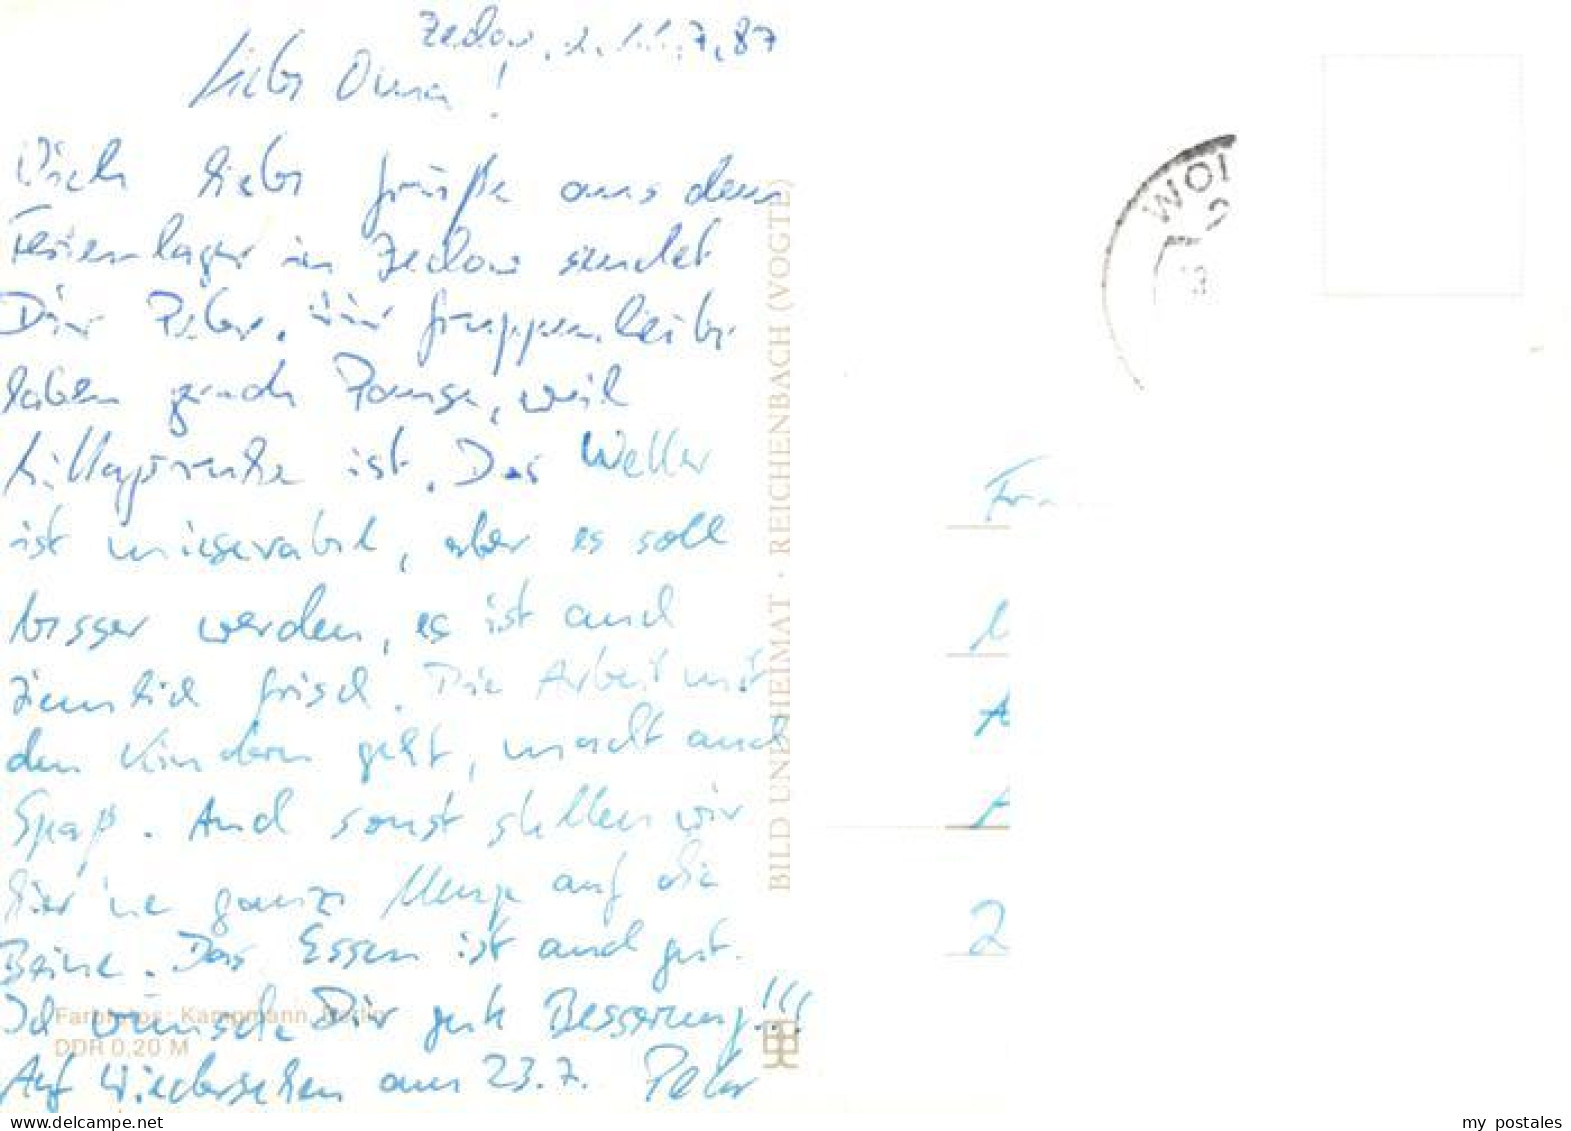 Zedow, 7.87
Liebe Oma!
Viele liebe Grüße aus dem
Ferienlager in Zedow sendet
Dir Peter. Wir Gruppenleiter
haben grad Pause, weil
Mittagsruhe ist. Das Wetter
ist miserabel, aber es soll
besser werden, es ist auch
ziemlich frisch. Die Arbeit mit
den Kindern geht, macht auch
Spaß. Und sonst stellen wir
hier 'ne ganze Menge auf die
Beine. Das Essen ist auch gut.
Ich wünsche Dir gute Besserung!!!
Auf Wiedersehen am 23.7. Peter
Farbfotos: Kampmann, Berlin
DDR 0,20 M
BILD UND HEIMAT · REICHENBACH (VOGTL)
WOL
2
my postales